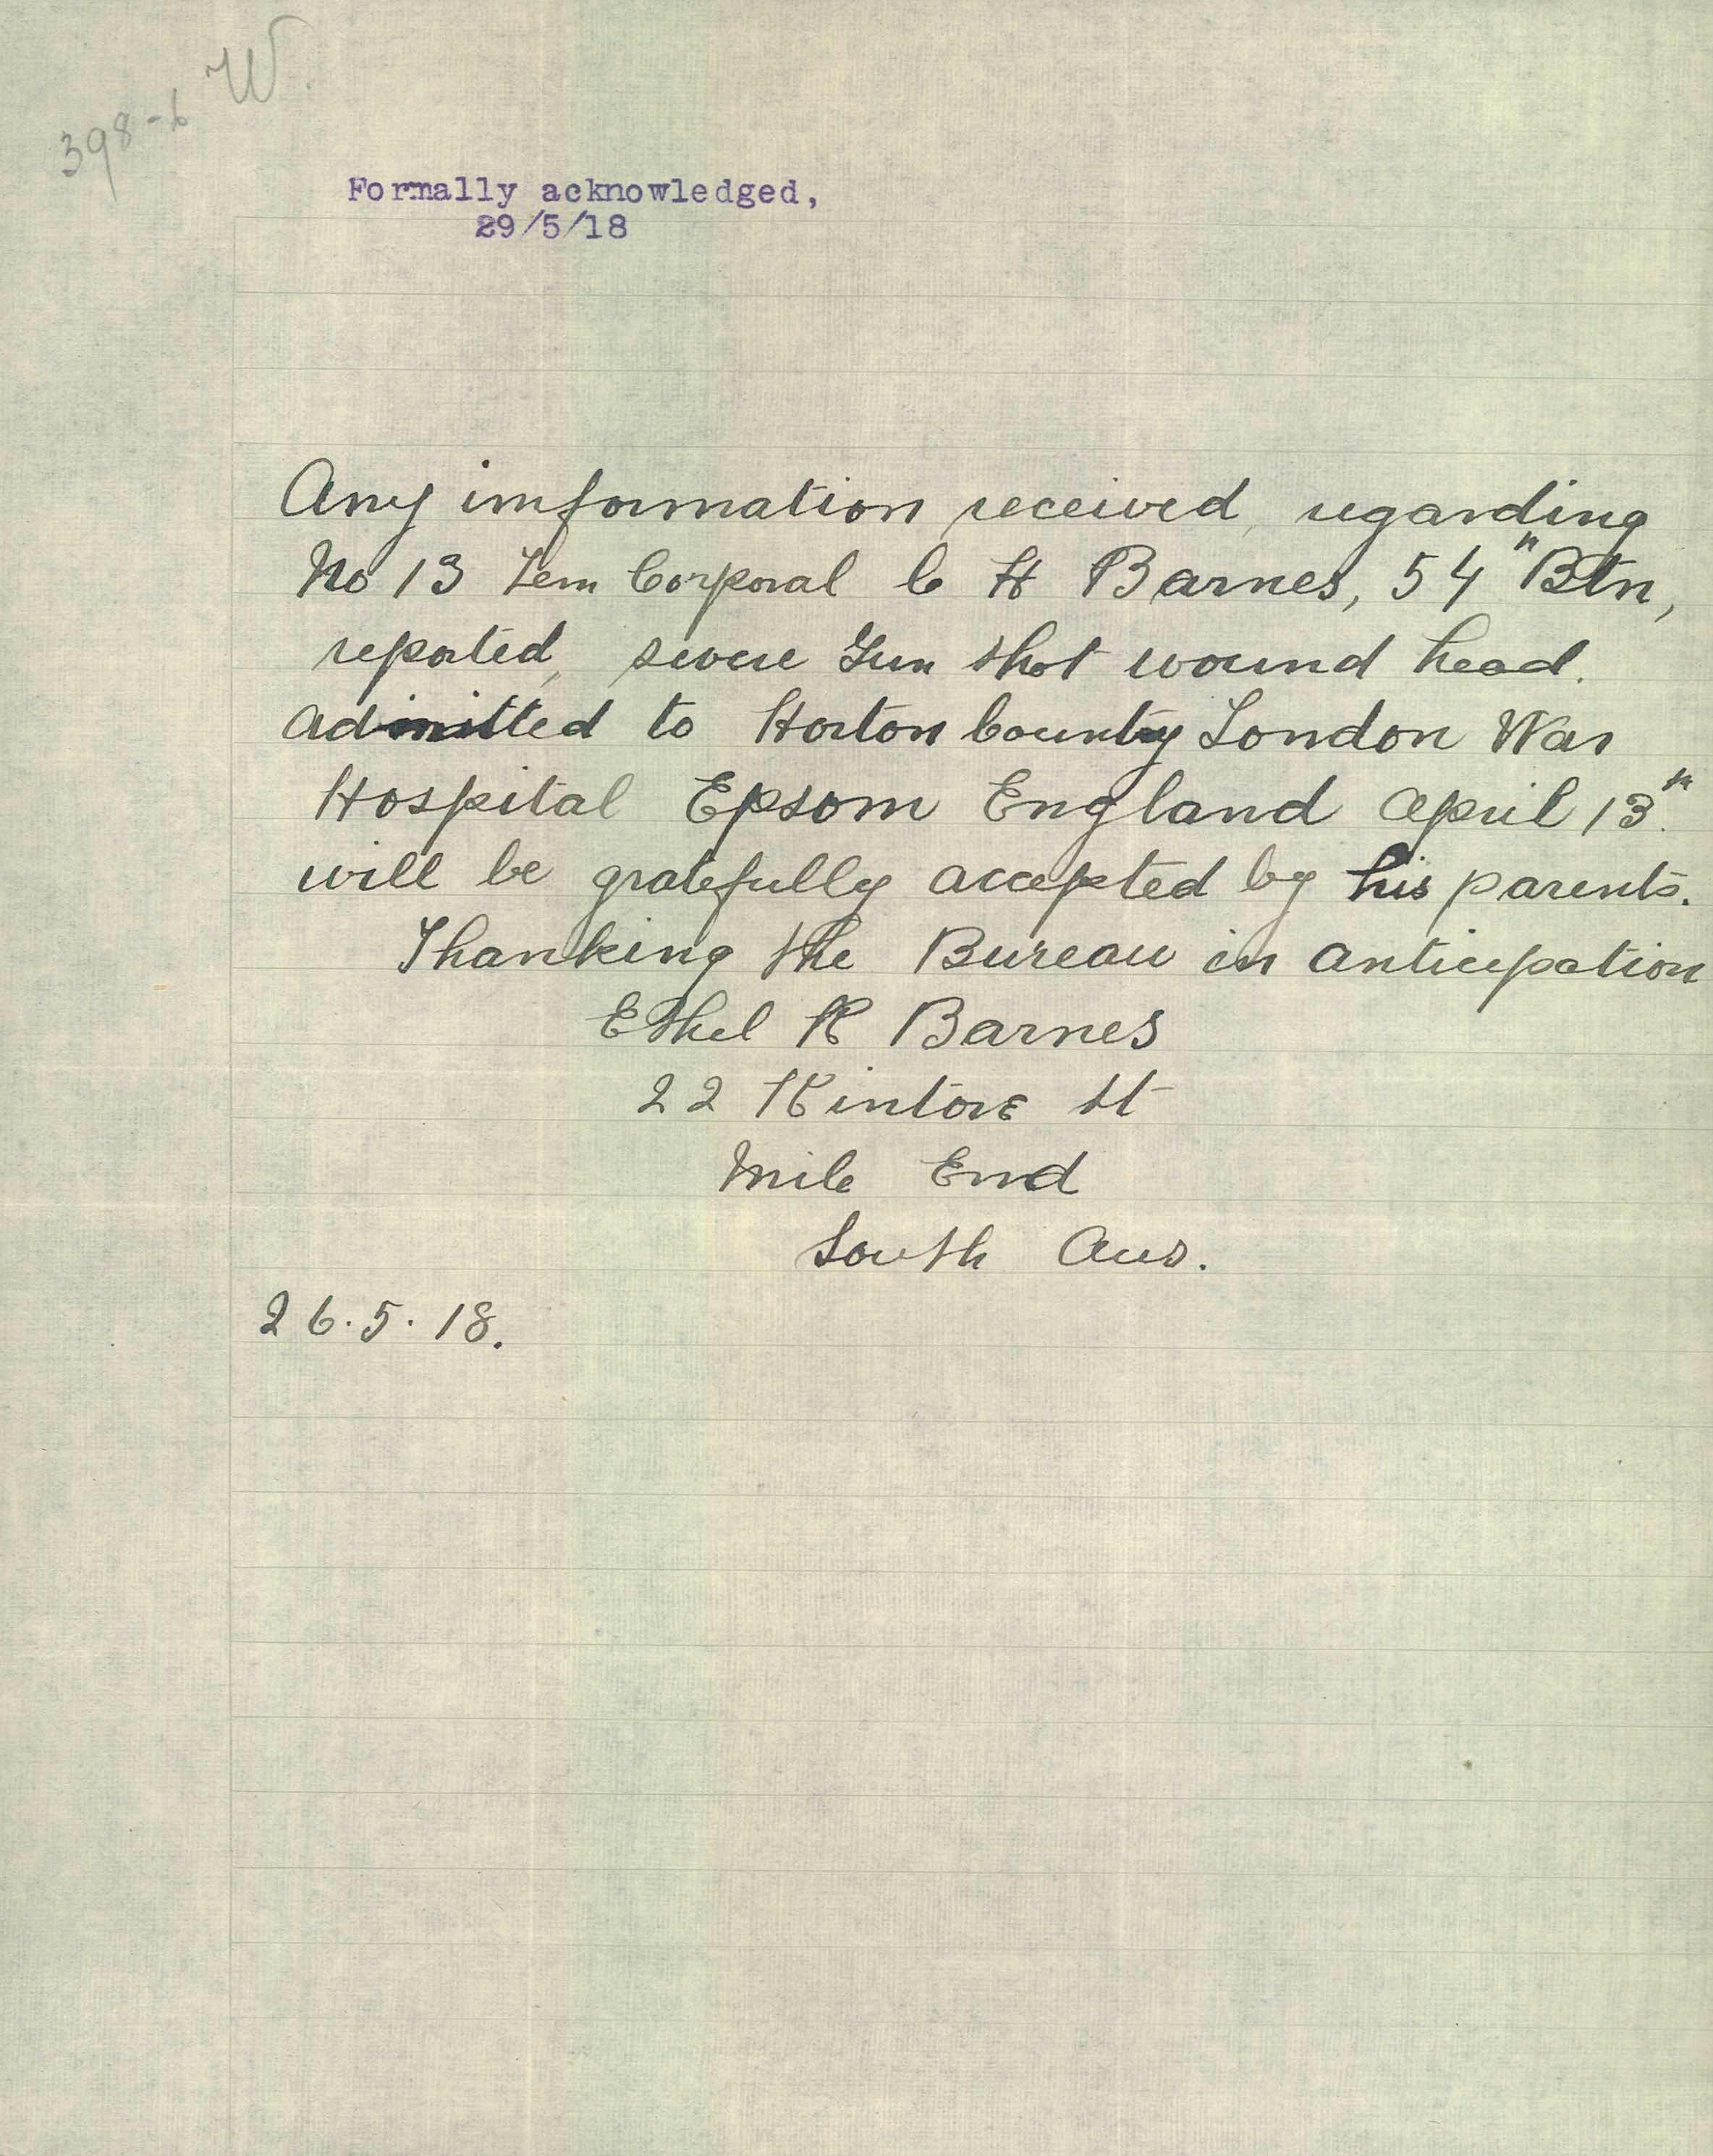 W.
398-6
Formally acknowledged,
29/5/18
Any imformation received, regarding
No 13 Tem Corporal C H Barnes, 54" Btn,
reported, severe Gun shot wound head.
admitted to Horton County London War
Hospital Epsom England April 13th.
will be gratefully accepted by his parents.
Thanking the Bureau in anticipation
Ethel K Barnes
22 Kintore St
Mile End
South Aus.
26.5.18.